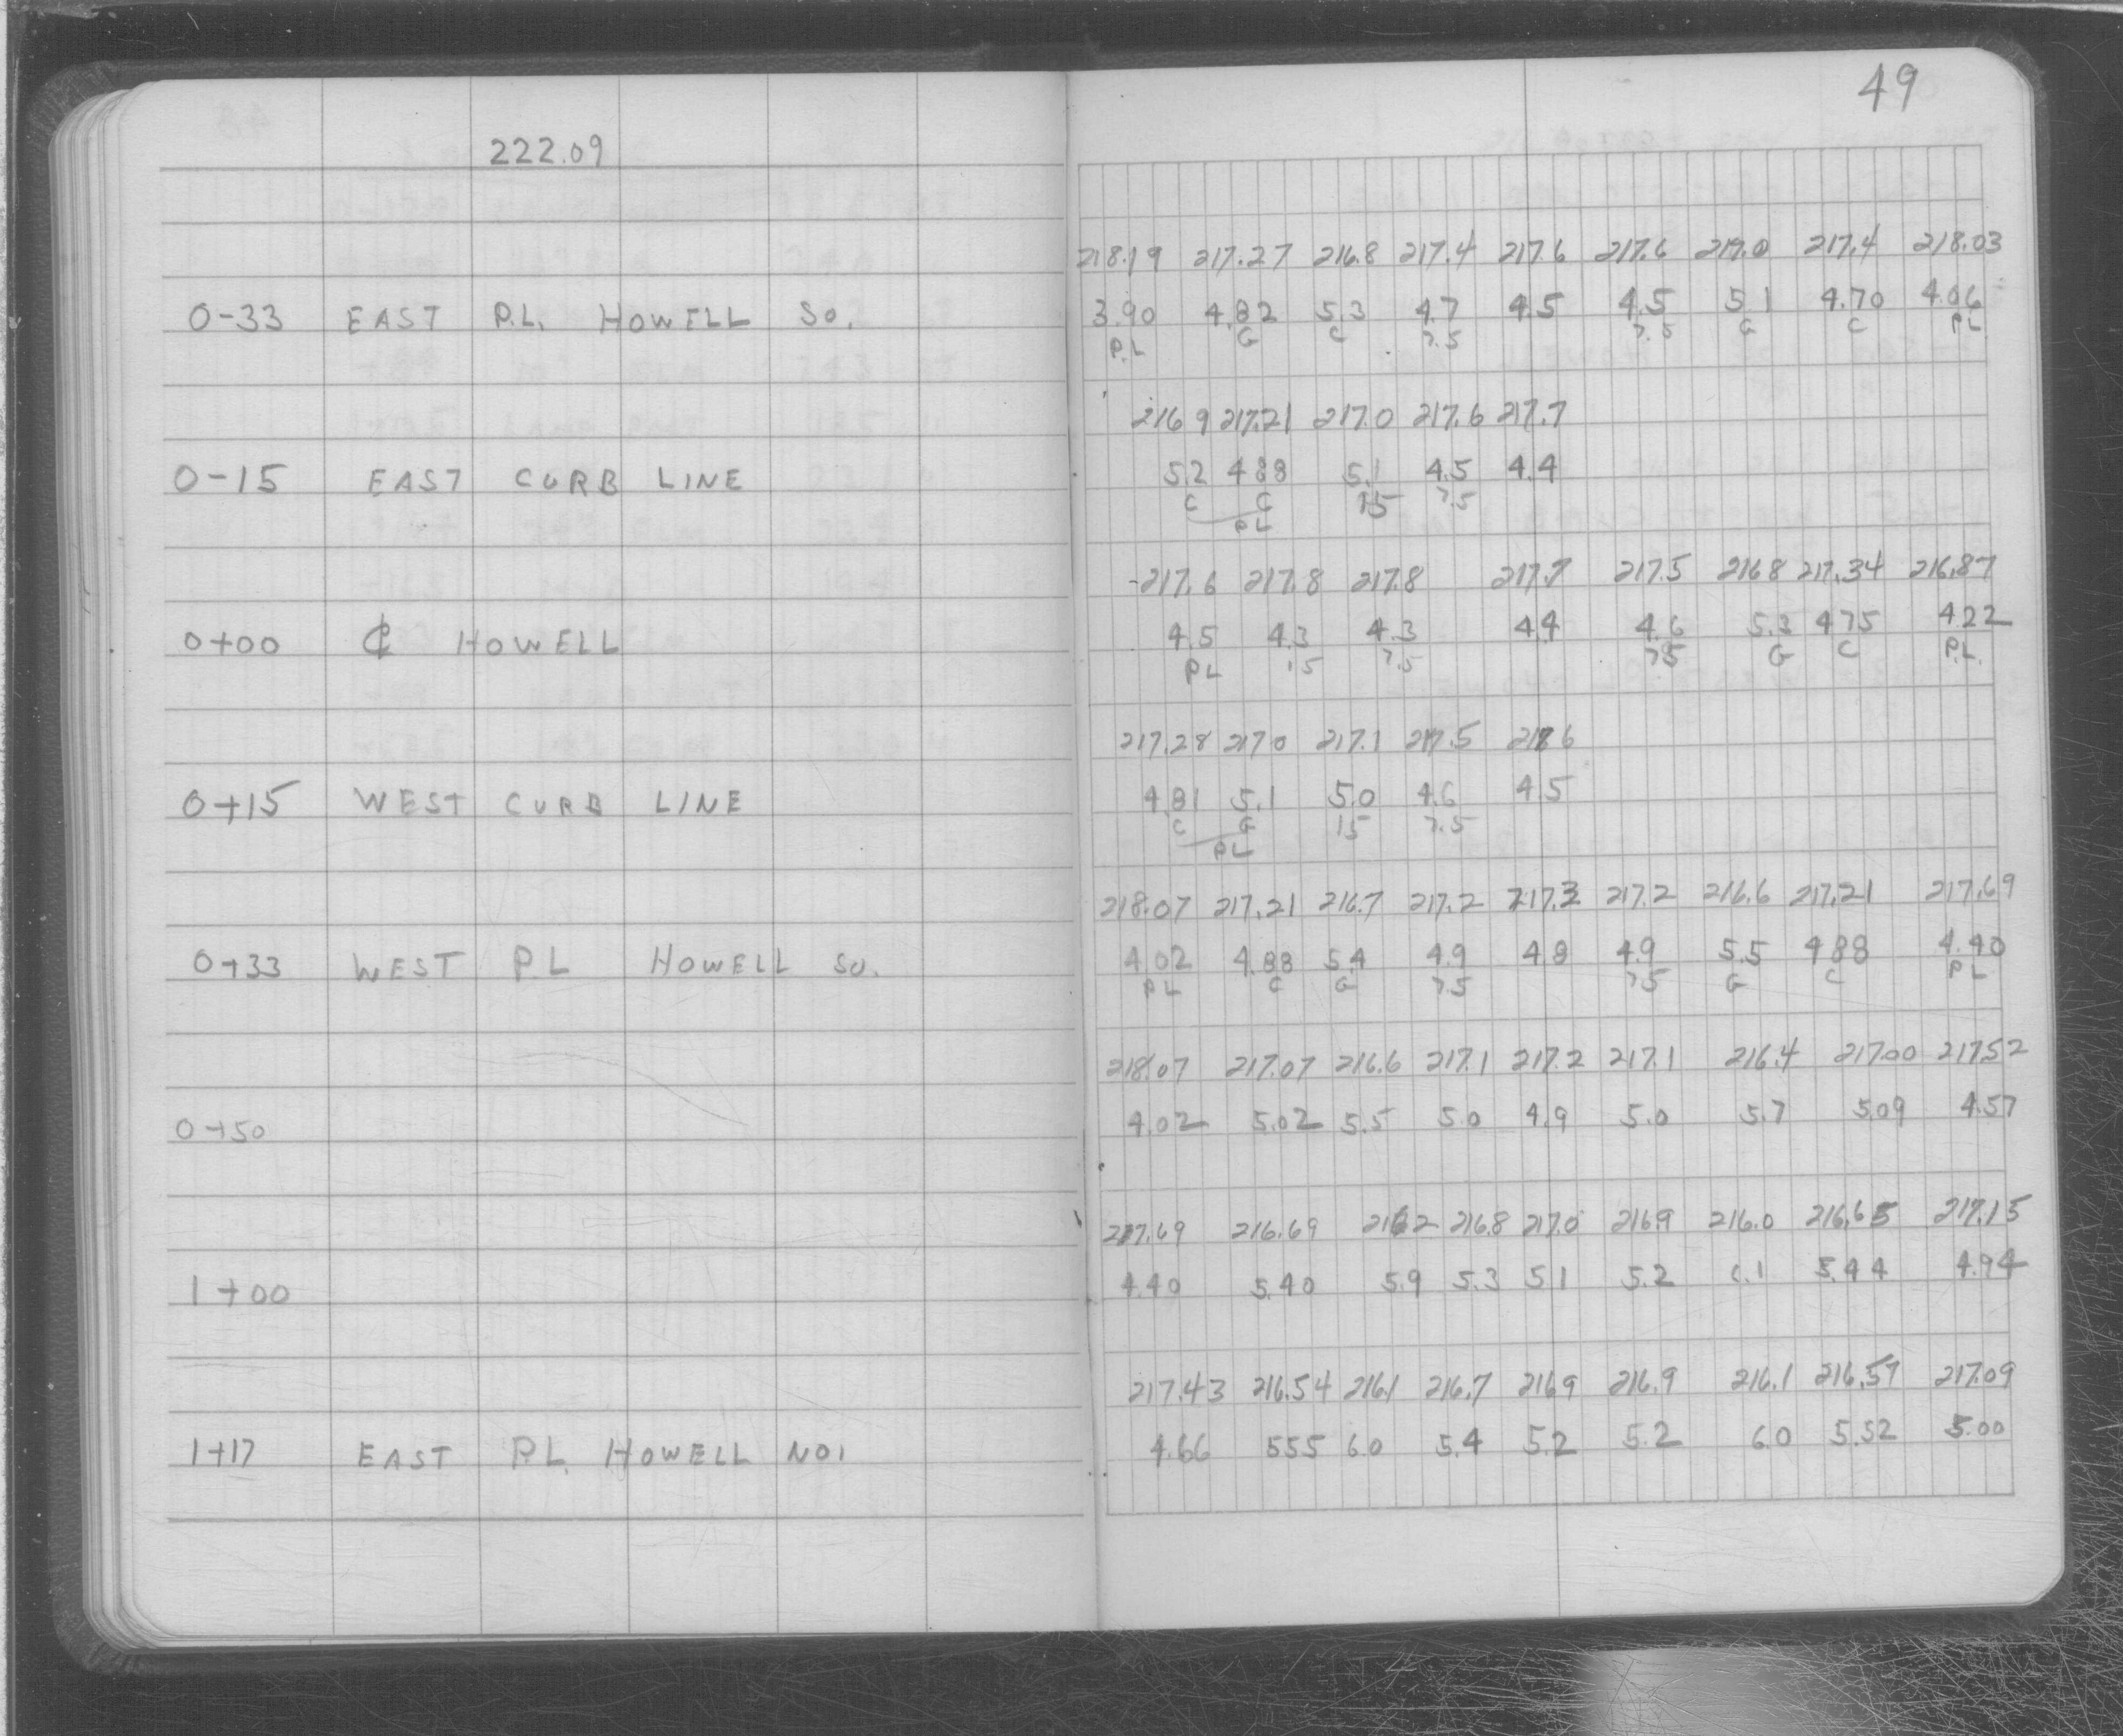 49
222.09
218.19 217.27 216.8 217.4 217.6 217.6 217.0 217.4 218.03
0-33 EAST P.L. HOWELL SO. 3.90 4.82 5.3 4.7 4.5 4.5 5.1 4.70 4.06
P.L G C 7.5 7.5 G C PL
216.9 217.21 217.0 217.6 217.7
0-15 EAST CURB LINE 5.2 4.88 5.1 4.5 4.4
C C 15 7.5
PL
217.6 217.8 217.8 217.7 217.5 216.8 217.34 216.87
0+00 ℄ HOWELL 4.5 4.3 4.3 4.4 4.6 5.3 4.75 4.22
PL 15 7.5 7.5 G C P.L.
217.28 217.0 217.1 217.5 217.6
0+15 WEST CURB LINE 4.81 5.1 5.0 4.6 4.5
C G 15 7.5
PL
218.07 217.21 216.7 217.2 217.3 217.2 216.6 217.21 217.69
0+33 WEST P.L HOWELL SO. 4.02 4.88 5.4 4.9 4.8 4.9 5.5 4.88 4.40
PL C G 7.5 7.5 G C PL
218.07 217.07 216.6 217.1 217.2 217.1 216.4 217.00 217.52
0+50 4.02 5.02 5.5 5.0 4.9 5.0 5.7 5.09 4.57
217.69 216.69 216.2 216.8 217.0 216.9 216.0 216.65 217.15
1+00 4.40 5.40 5.9 5.3 5.1 5.2 6.1 5.44 4.94
217.43 216.54 216.1 216.7 216.9 216.9 216.1 216.57 217.09
1+17 EAST P.L. HOWELL NO. 4.66 5.55 6.0 5.4 5.2 5.2 6.0 5.52 5.00